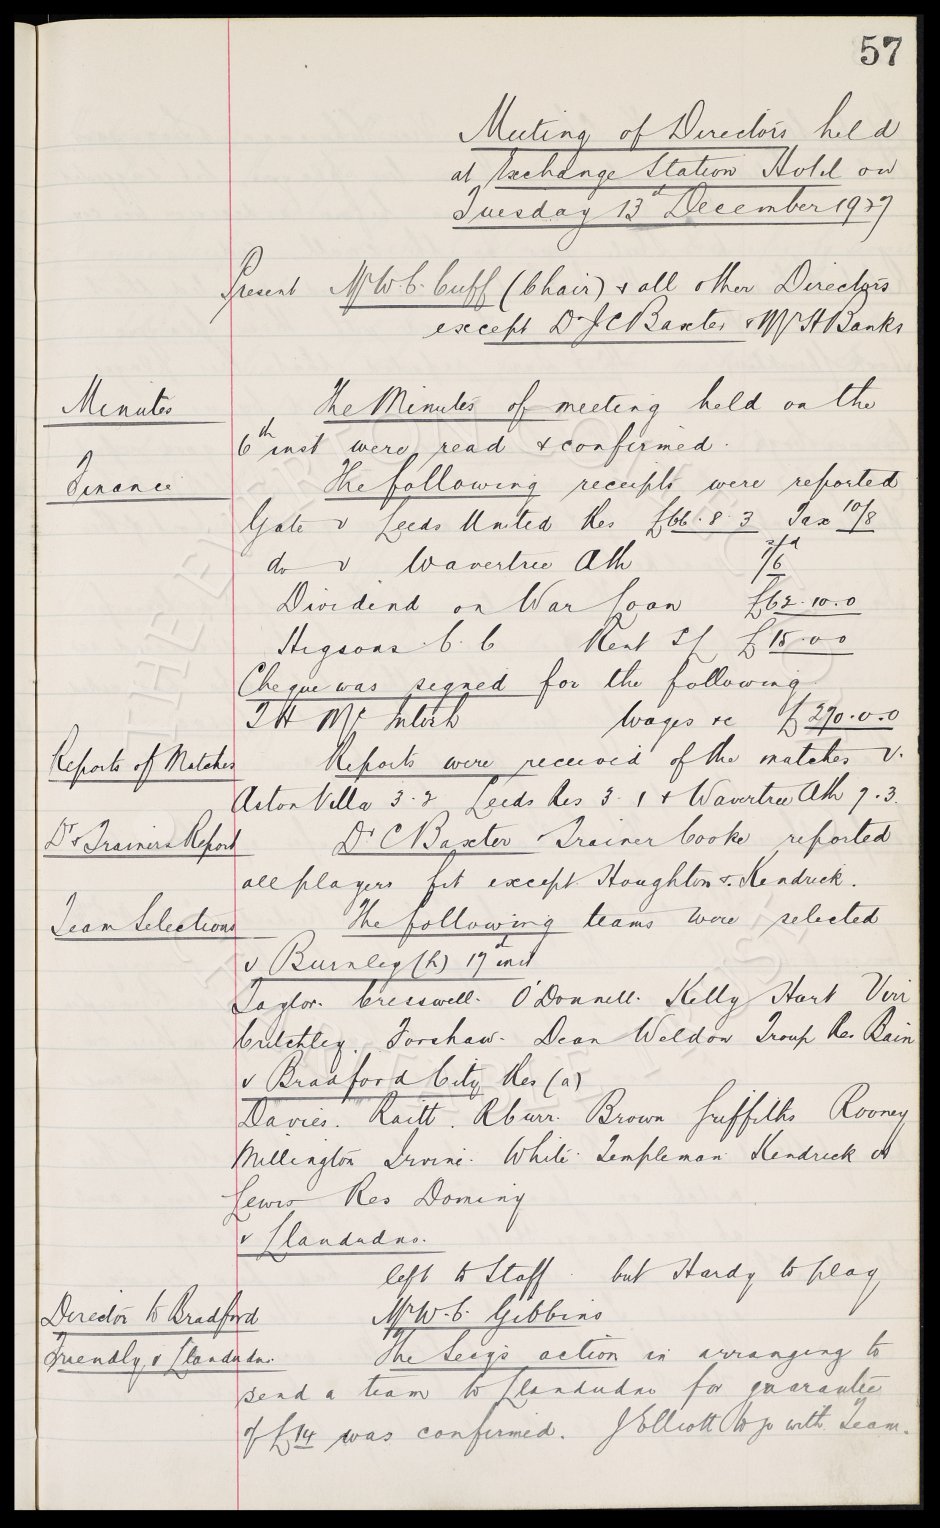 57
Meeting of Directors held
at Exchange Station Hotel on
Tuesday 13th December 1927
Present Mr W. C. Cuff (Chair) & all other Directors
except Dr J C Baxter & Mr H Banks
Minutes The Minutes of meeting held on the
6th inst were read & confirmed.
Finance The following receipts were reported
Gate v Leeds United Res £66.8.3 Tax 10/8
do v Wavertree Ath 7/6
Dividend on War Loan £62.10.0
Higsons B. C Rent £15.0.0
Cheque was signed for the following
T H McIntosh Wages &c £290.0.0
Reports of Matches Reports were received of the matches v.
Aston Villa 3.2 Leeds Res 3.1 & Wavertree Ath 7.3.
Dr & Trainers Report Dr C Baxter & Trainer Cooke reported
all players fit except Houghton & Kendrick.
Team Selections The following teams were selected
v Burnley (h) 17th inst
Taylor. Cresswell. O'Donnell. Kelly Hart Virr
Critchley. Forshaw. Dean Weldon Troup Res Bain
v Bradford City Res (a)
Davies. Raitt. Kerr. Brown Griffiths Rooney
Millington Irvine. White. Templeman Kendrick or
Lewis Res Dominy
v Llandudno.
left to Staff. but Hardy to play
Director to Bradford Mr W. C. Gibbins
Friendly v Llandudno. The Secy's action in arranging to
send a team to Llandudno for guarantee
of £14 was confirmed. J Elliott to go with Team.